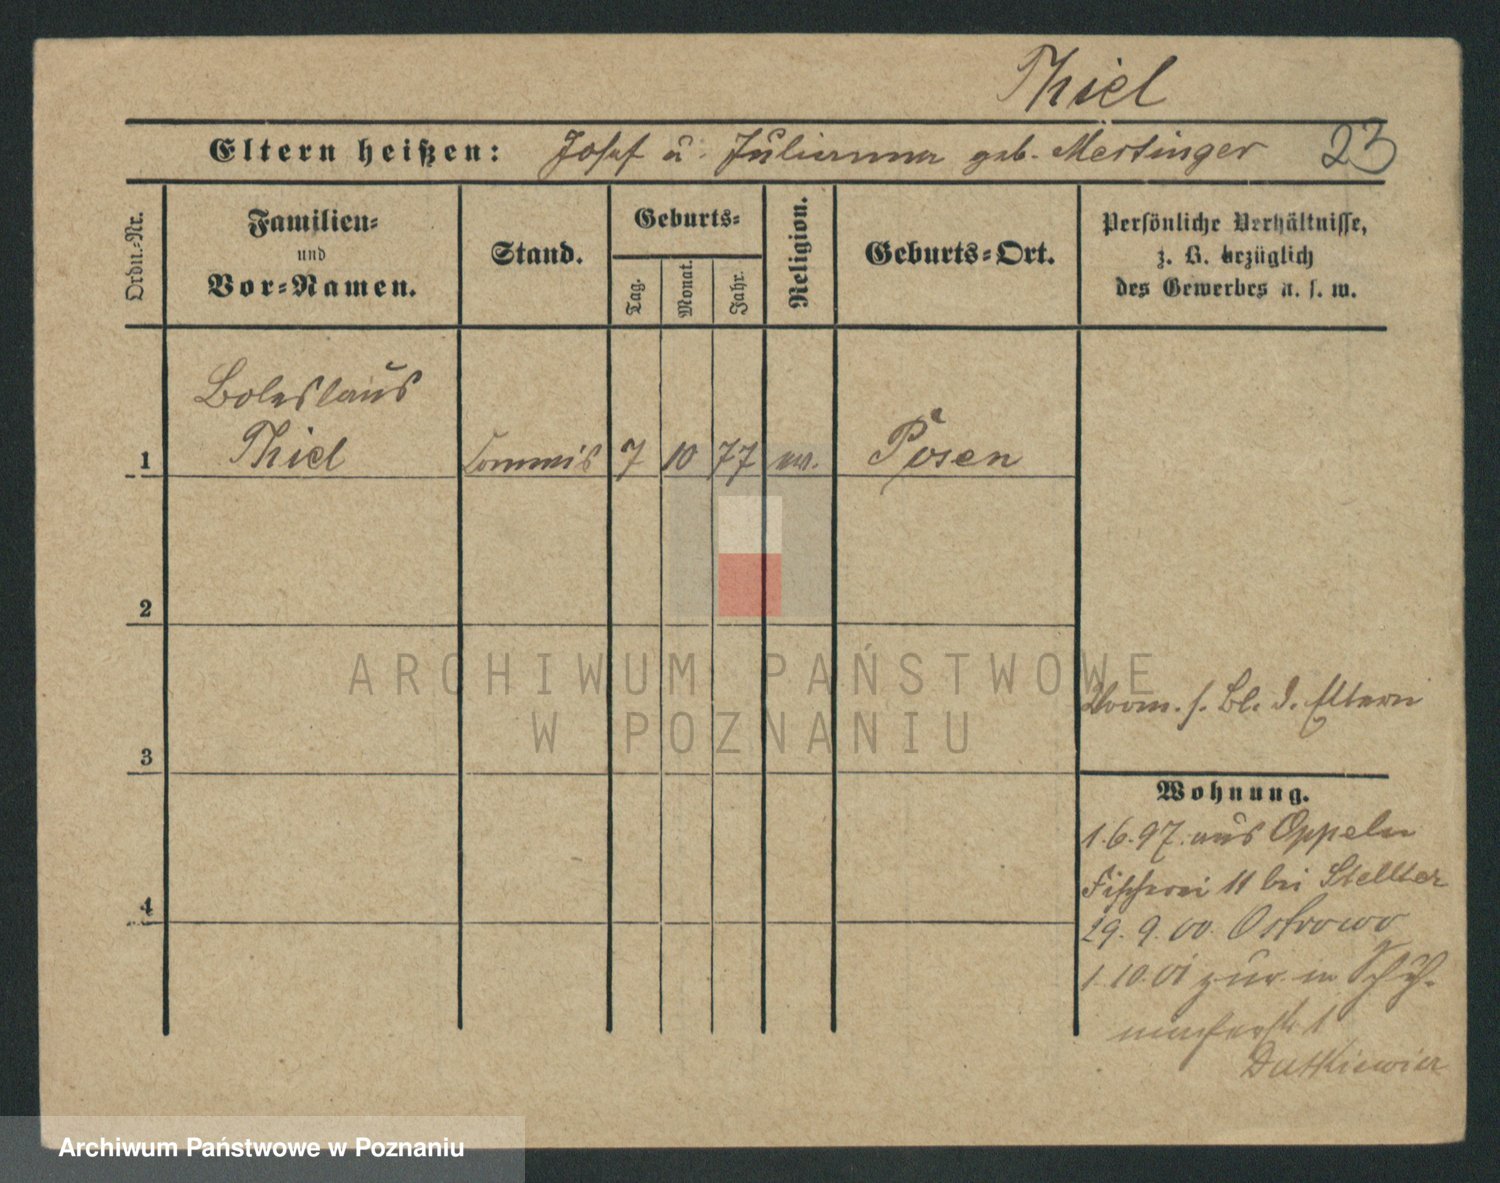 Thiel
Eltern heißen: Josef u. Julianna geb. Mersinger 23
Ordn.-Nr.
Familien-
und
Vor-Namen.
Stand.
Geburts-
Tag.
Monat.
Jahr.
Religion.
Geburts-Ort.
Persönliche Verhältnisse,
z. B. bezüglich
des Gewerbes u. s. w.
Boleslaus
1 Thiel Commis 7 10 77 Posen
2
3
4
s. Bl. d. Eltern
Wohnung.
1.6.97. aus Oppeln
Fischerei 11 bei Stellter
29. 9. 00. Ostrowo
1.10.01 zur. in Schuh-
macherstr 1
Dutkiewicz
ARCHIWUM PAŃSTWOWE
W POZNANIU
Archiwum Państwowe w Poznaniu